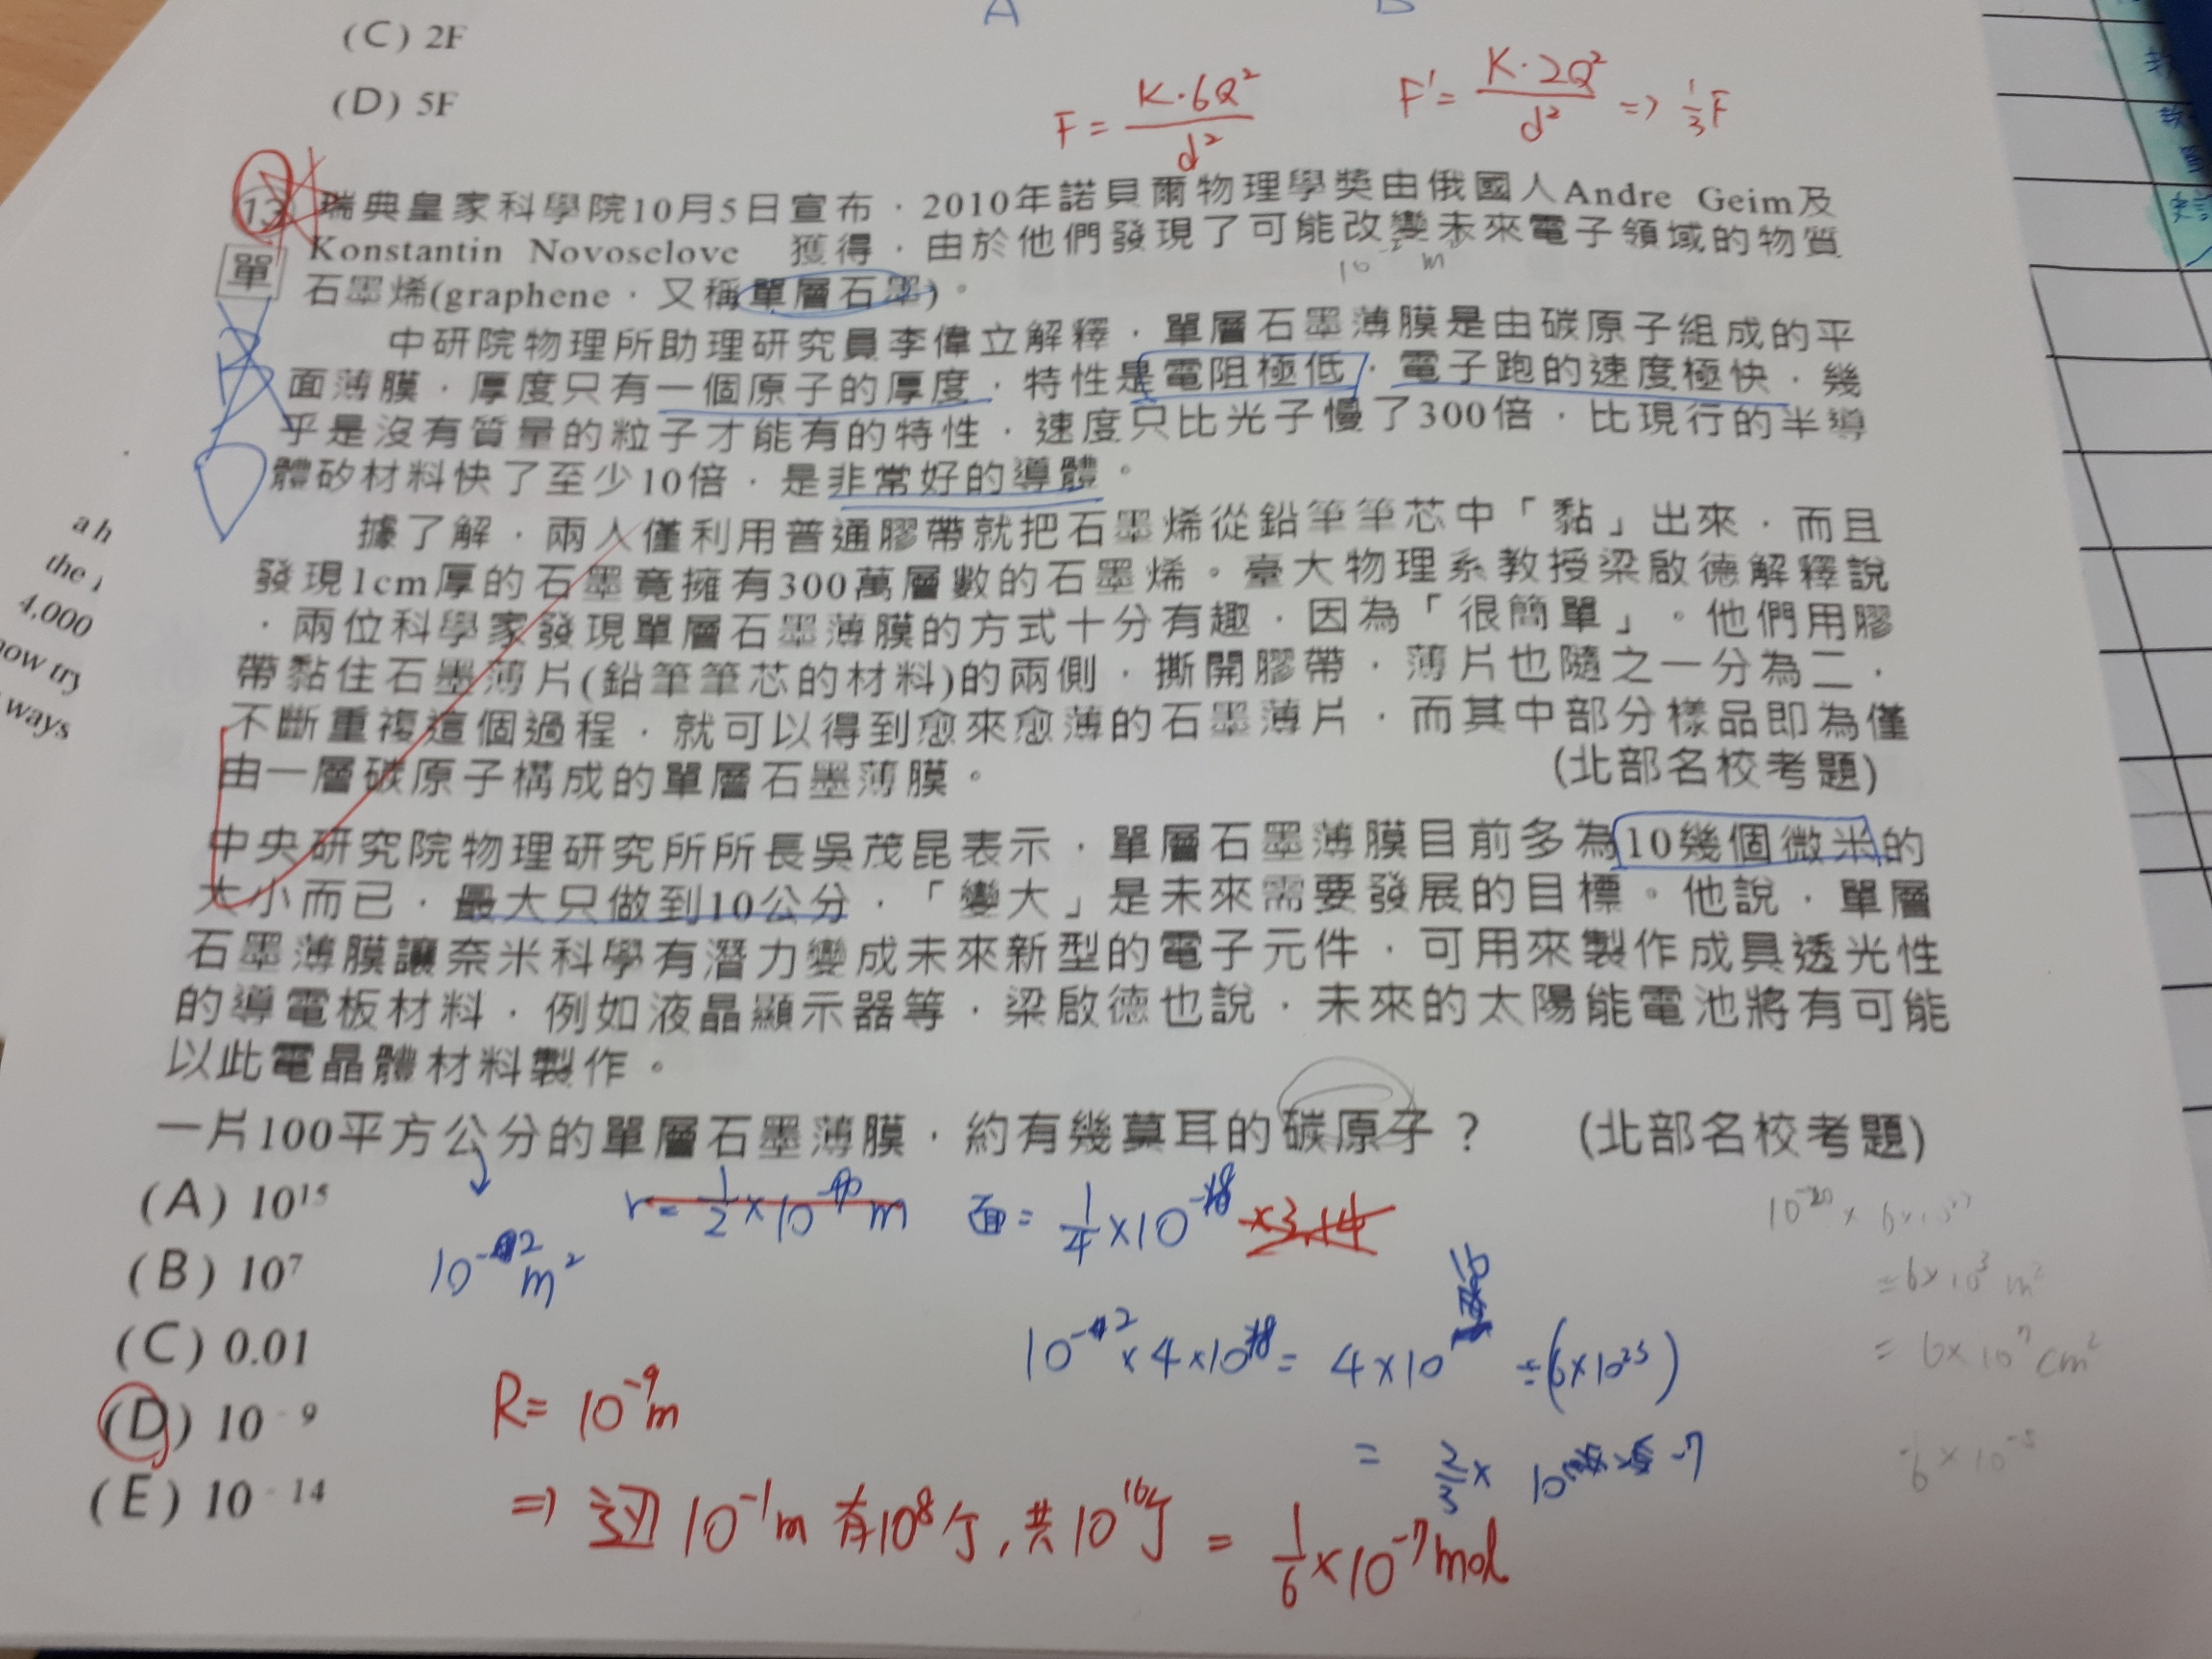 A B
(C) 2F
(D) 5F
F = K·6Q² / d²   F' = K·2Q² / d² => 1/3 F
13 瑞典皇家科學院10月5日宣布，2010年諾貝爾物理學獎由俄國人Andre Geim及
單 Konstantin Novoselove 獲得，由於他們發現了可能改變未來電子領域的物質
石墨烯(graphene，又稱單層石墨)。
中研院物理所助理研究員李偉立解釋，單層石墨薄膜是由碳原子組成的平
面薄膜，厚度只有一個原子的厚度，特性是電阻極低，電子跑的速度極快，幾
乎是沒有質量的粒子才能有的特性，速度只比光子慢了300倍，比現行的半導
體矽材料快了至少10倍，是非常好的導體。
據了解，兩人僅利用普通膠帶就把石墨烯從鉛筆筆芯中「黏」出來，而且
發現1cm厚的石墨竟擁有300萬層數的石墨烯。臺大物理系教授梁啟德解釋說
，兩位科學家發現單層石墨薄膜的方式十分有趣，因為「很簡單」。他們用膠
帶黏住石墨薄片(鉛筆筆芯的材料)的兩側，撕開膠帶，薄片也隨之一分為二，
不斷重複這個過程，就可以得到愈來愈薄的石墨薄片，而其中部分樣品即為僅
由一層碳原子構成的單層石墨薄膜。 (北部名校考題)
中央研究院物理研究所所長吳茂昆表示，單層石墨薄膜目前多為10幾個微米的
大小而已，最大只做到10公分，「變大」是未來需要發展的目標。他說，單層
石墨薄膜讓奈米科學有潛力變成未來新型的電子元件，可用來製作成具透光性
的導電板材料，例如液晶顯示器等，梁啟德也說，未來的太陽能電池將有可能
以此電晶體材料製作。
一片100平方公分的單層石墨薄膜，約有幾莫耳的碳原子？ (北部名校考題)
(A) 10¹⁵
r = 1/2 × 10 m   面 = 1/4 × 10⁻¹⁸ ×3.14
(B) 10⁷
10⁻² m²
(C) 0.01
10⁻² × 4×10¹⁸ = 4×10¹⁶ ÷(6×10²³)
= 6×10³ m²
= 6×10⁷ cm²
(D) 10⁻⁹
R = 10⁻⁹ m
= 2/3 × 10⁻⁷
(E) 10⁻¹⁴
=> 邊 10⁻¹m 有10⁸个, 共10¹⁶个 = 1/6 × 10⁻⁷ mol
a h
the
4,000
now try
ways